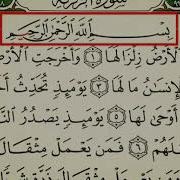 سُورَةُ الزَّلْزَلَةِ
بِسْمِ ٱللَّهِ ٱلرَّحْمَٰنِ ٱلرَّحِيمِ
ٱلْأَرْضُ زِلْزَالَهَا ١ وَأَخْرَجَتِ ٱلْأَرْ
ٱلْإِنسَٰنُ مَا لَهَا ٣ يَوْمَئِذٍ تُحَدِّثُ
أَوْحَىٰ لَهَا ٥ يَوْمَئِذٍ يَصْدُرُ ٱلنَّا
لَهُمْ ٦ فَمَن يَعْمَلْ مِثْقَالَ
مِثْقَالَ ذَرَّةٍ